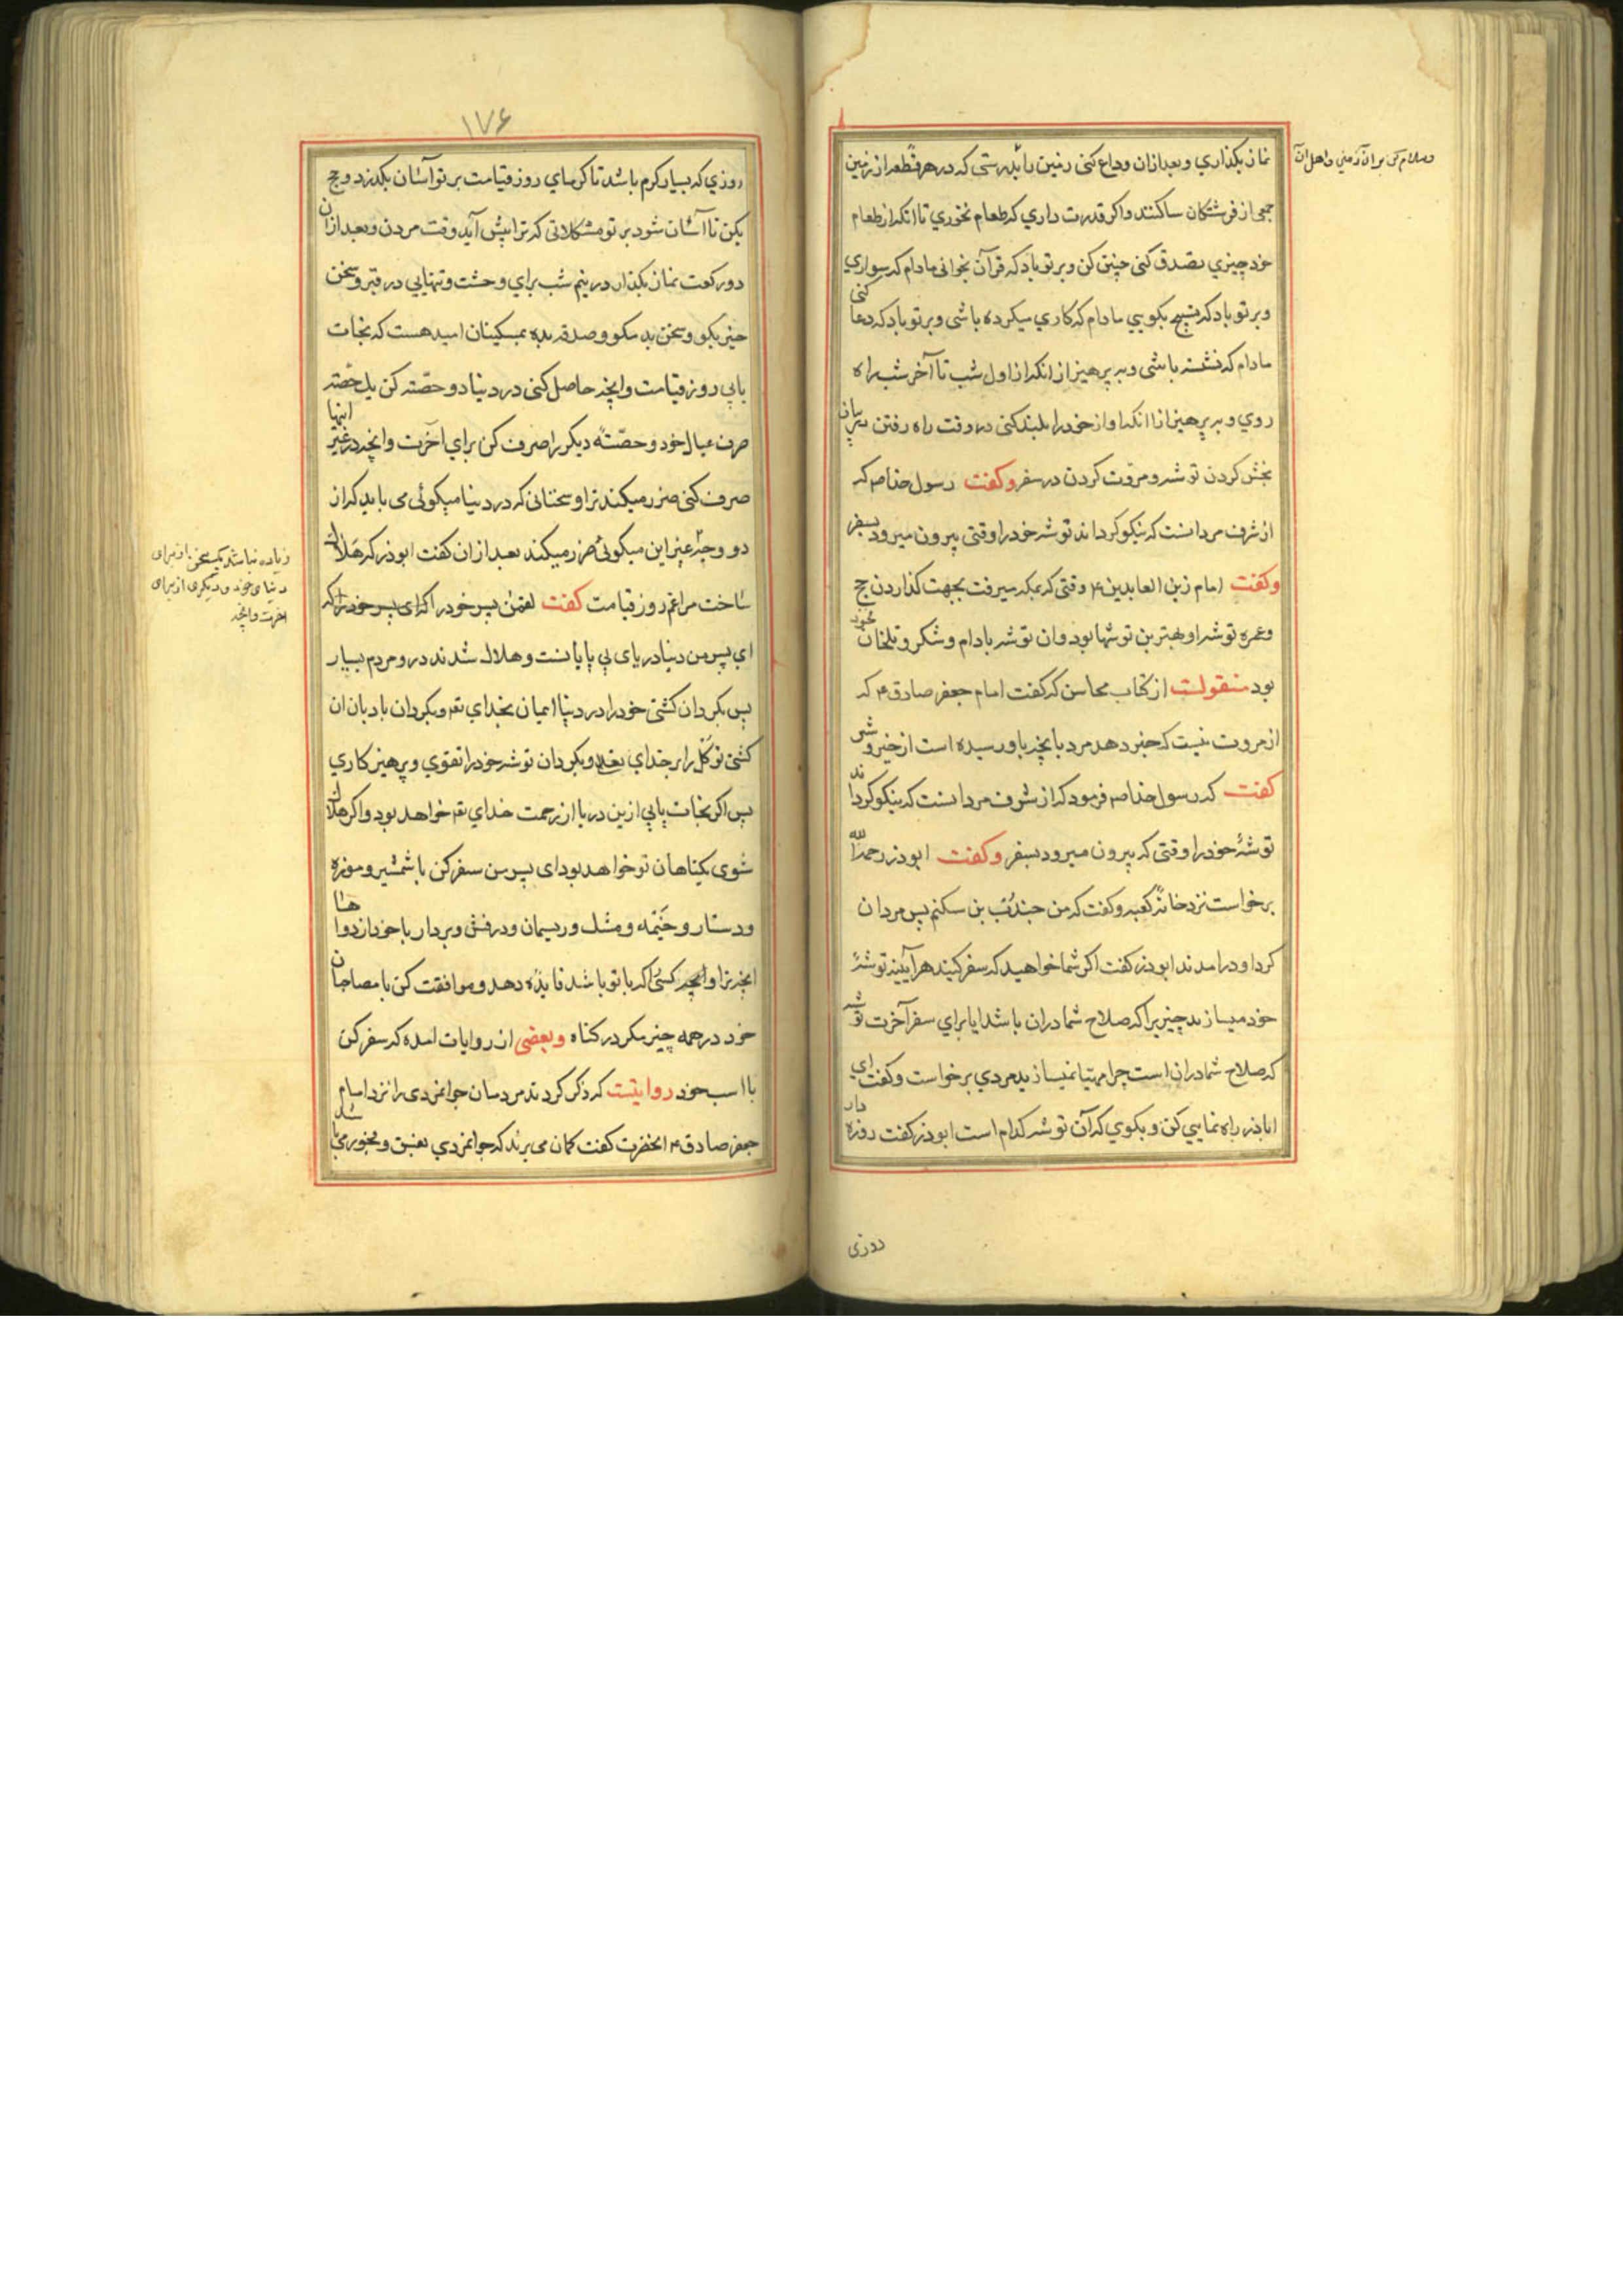 نماز بکذاري و بعد ازان وداع کنی زمین را بدرستی که در هر قطعه از زمین
وسلام کن بر ان زمین و اهل ان
جمعی از فرشتکان ساکنند و اکر قدرت داري که طعام نخوري تا انکه از طعام
خود چیزي تصدق کنی چنین کن و بر تو باد که قرآن بخوانی مادام که سواري
و بر تو باد که تسبیح بکویي مادام که کاري میکرده باشی و بر تو باد که دعا کنی
مادام که نشسته باشی و بپرهیز از انکه از اول شب تا آخر شب راه
روي و بپرهیز از انکه اواز خود را بلند کنی در وقت راه رفتن
بخش کردن توشه و مروّت کردن در سفر وکفت رسول خدا صم که
از شرف مردانست که نیکو کرداند توشه خود را وقتی بیرون میرود بسفر
وکفت امام زین العابدین ع وقتی که بمکه میرفت بجهت کذاردن حج
و عمره توشه او بهترین توشها بود و ان توشه بادام و شکر و تلخان
بود منقولست از کتاب محاسن که کفت امام جعفر صادق ع که
از مروت نیست که خبر دهد مرد بانچه باو رسیده است از خیر و شر
کفت که رسول خدا صم فرمود که از شرف مردانست که نیکو کرداند
توشهٔ خود را وقتی که بیرون میرود بسفر وکفت ابوذر رحمه الله
برخواست نزد خانهٔ کعبه و کفت که من جندب بن سکنم پس مردان
کرد او درامدند ابوذر کفت اکر شما خواهید که سفر کنید هر آیینه توشهٔ
خود میسازید چیزیرا که صلاح شما دران باشد ایا براي سفر آخرت توشه
که صلاح شما دران است چرا مهیّا نمیسازید مردي برخواست و کفت اي
اباذر راه نمایي کن و بکوي که آن توشه کدام است ابوذر کفت روزه دار
روزی
۱۷۶
روزي که بسیار کرم باشد تا کرماي روز قیامت بر تو آسان بکذرد و حج
بکن تا آسان شود بر تو مشکلاتی که ترا پیش آید وقت مردن و بعد ازان
دو رکعت نماز بکذار در نیم شب براي وحشت و تنهایي در قبر و سخن
خیر بکو و سخن بد مکو و صدقه بده بمسکینان امید هست که نجات
یابي روز قیامت و انچه حاصل کنی در دنیا دو حصّه کن یك حصّه
صرف عیال خود و حصّهٔ دیکر را صرف کن براي آخرت و انچه در غیر اینها
صرف کنی ضرر میکند ترا و سخنانی که در دنیا میکوئی می باید که از
دو وجه غیر این میکوئی ضرر میکند بعد ازان کفت ابوذر که هلاك
زیاده نباشد یکسخن از برای
دنیای خود و دیکری از برای
اخرت و انچه
ساخت مرا غم روز قیامت کفت لقمن پسر خود را که ای پسر خود را که
اي پسر من دنیا دریای بي پایانست و هلاك شدند درو مردم بسیار
پس بکردان کشتی خود را در دنیا ایمان بخداي تع و بکردان بادبان ان
کشتی توکّل را بر خداي تعالی و بکردان توشه خود را تقوي و پرهیزکاري
پس اکر نجات یابي ازین دریا از رحمت خداي تع خواهد بود و اکر هلاك
شوی بکناهان تو خواهد بود ای پسر من سفر کن با شمشیر و موزه
و دستار و خیمه و مشك و ریسمان و درفش و بردار با خود از دواها
انچه ترا و انچه کسی را که با تو باشد فایده دهد و موافقت کن با مصاحبان
خود در همه چیز مکر در کناه و بعضی از روایات امده که سفر کن
با اسب خود روایتست که ذکر کردند مردمان جوانمردی را نزد امام
جعفر صادق ع انحضرت کفت کمان می برند که جوانمردي بفسق و فجور می باشد